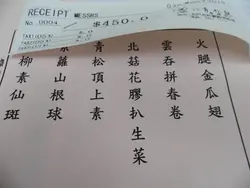 RECEIPT MESSRS
No. 0004
$450.0
火腿金瓜翅
雲吞拼春卷
北菇花膠扒生菜
青松頂上素
蘿山根球
柳素仙斑